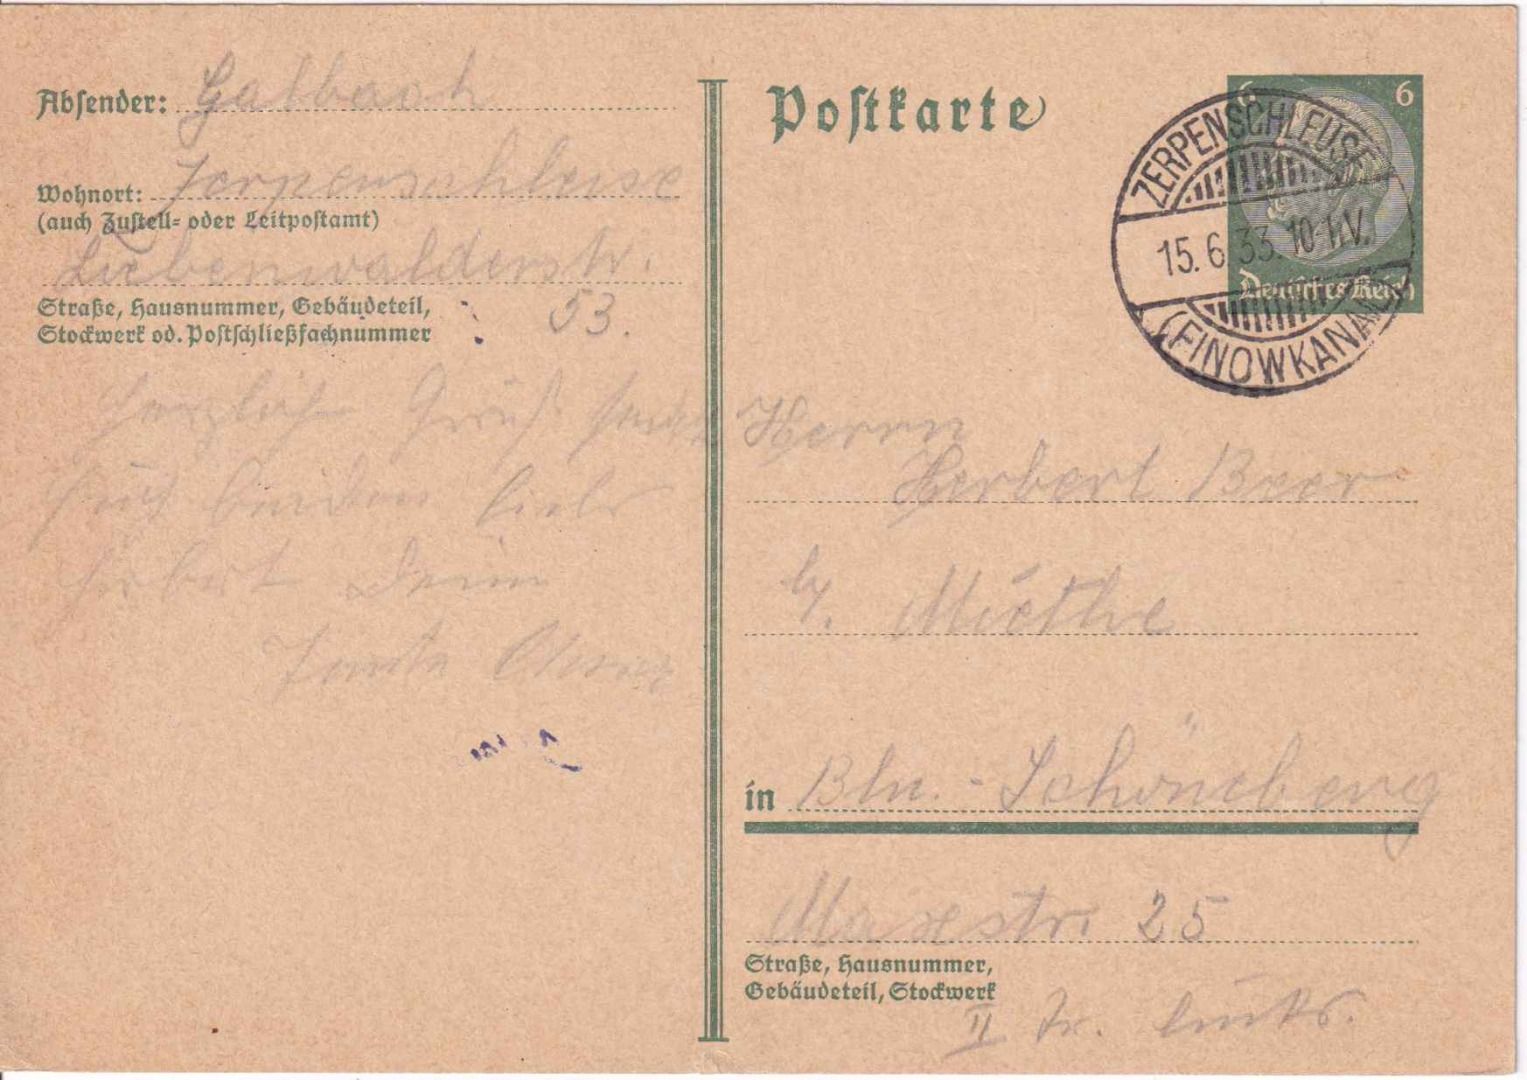 Absender: Galbach
Wohnort: Zerpenschleuse
(auch Zustell- oder Leitpostamt)
Liebenwalderstr.
Straße, Hausnummer, Gebäudeteil,
Stockwerk od. Postschließfachnummer
53.
Herzlich Gruß
beiden
Herbert Deine
Tante
Postkarte
6 6
Deutsches Reich
ZERPENSCHLEUSE
15.6.33.10-11V.
(FINOWKANAL)
Herrn
Herbert Beer
b/. Miethe
in Bln.-Schöneberg
str. 25
Straße, Hausnummer,
Gebäudeteil, Stockwerk
II Tr. links.